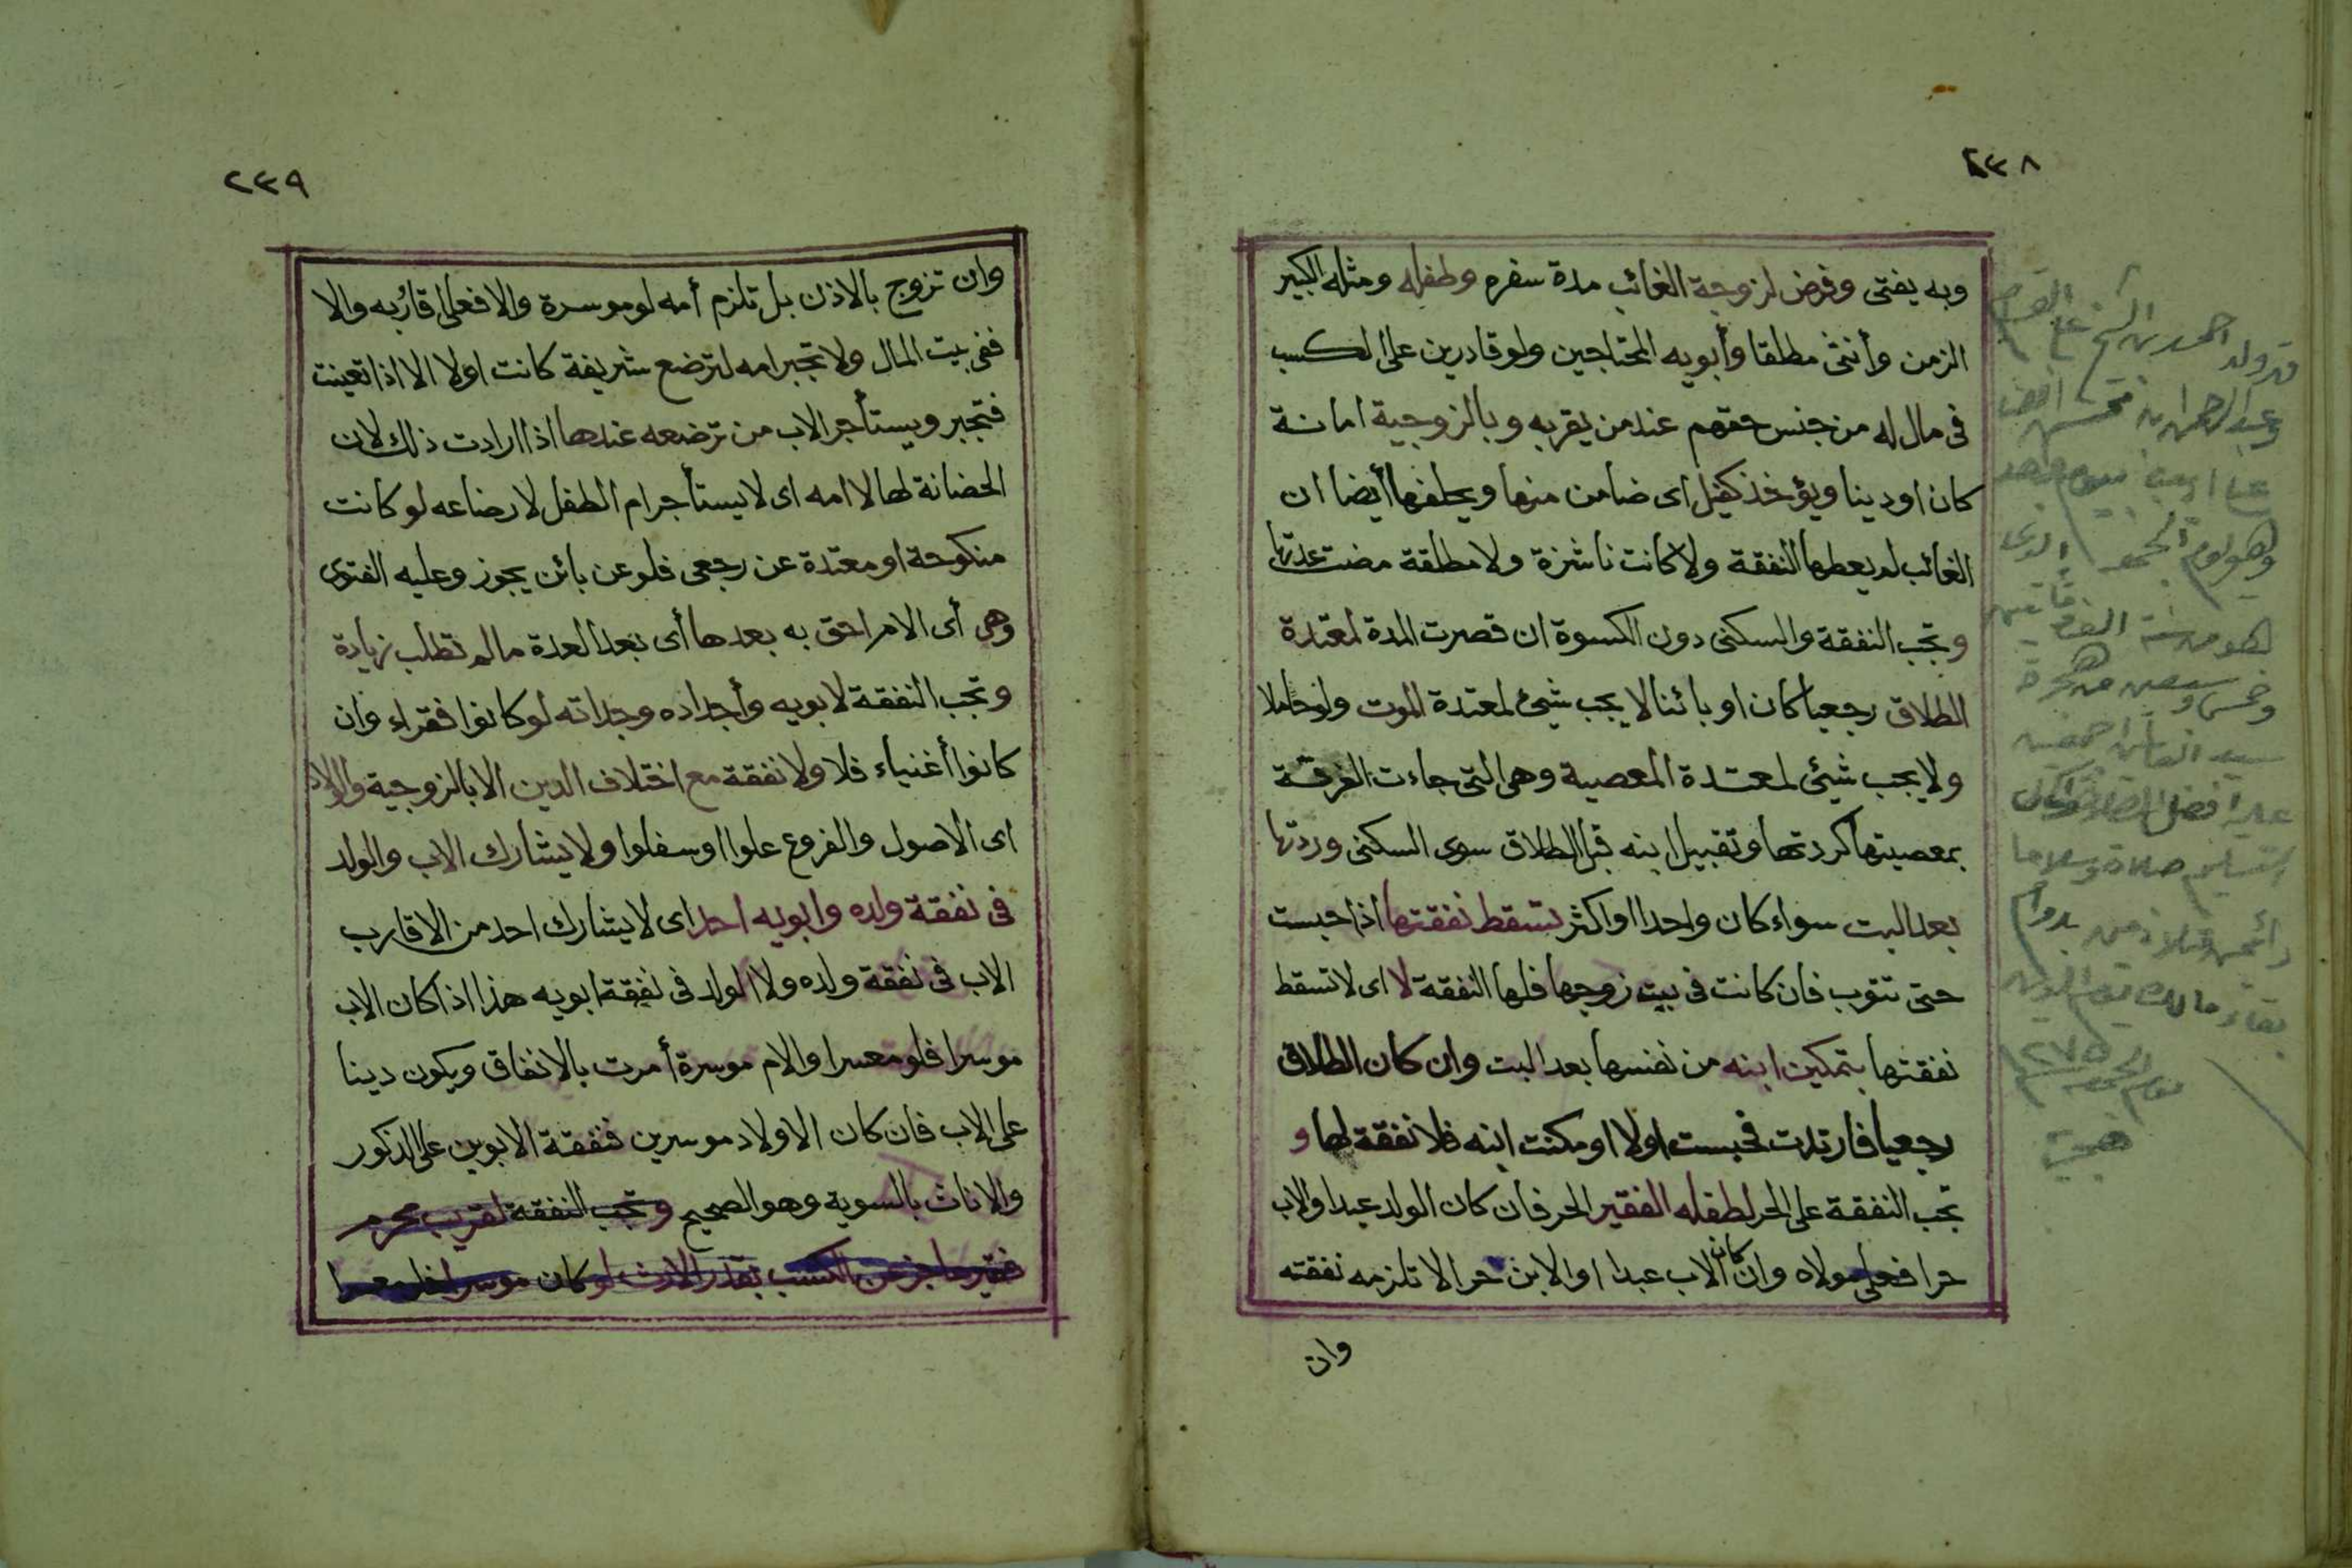 ٢٣٨
وبه يفتى وفرض لزوجة الغائب مدة سفره وطفله ومثله الكبير
الزمن وأنثى مطلقا وأبويه المحتاجين ولو قادرين على الكسب
فى مال له من جنس حقهم عند من يقر به وبالزوجية امانة
كان او دينا ويؤخذ كفيل اى ضامن منها ويحلفها أيضا ان
الغائب لم يعطها النفقة ولا كانت ناشزة ولا مطلقة مضت عدتها
وتجب النفقة والسكنى دون الكسوة ان قصرت المدة لمعتدة
الطلاق رجعيا كان او بائنا لا يجب شيئ لمعتدة الموت ولو حاملا
ولا يجب شيئ لمعتدة المعصية وهى التى جاءت الفرقة
بمعصيتها كردتها وتقبيل ابنه قبل الطلاق سوى السكنى وردتها
بعد البت سواء كان واحدا او اكثر تسقط نفقتها اذا حبست
حتى تتوب فان كانت فى بيت زوجها فلها النفقة لا اى لا تسقط
نفقتها بتمكين ابنه من نفسها بعد البت وان كان الطلاق
رجعيا فارتدت فحبست اولا او مكنت ابنه فلا نفقة لها و
تجب النفقة على الحر لطفله الفقير الحر فان كان الولد عبدا والاب
حرا فعلى مولاه وان كان الاب عبدا او الابن حرا لا تلزمه نفقته
وان
قد ولد احمد بن الشيخ على
وعبد الرحمن بن
وهو يوم الجمعة الذى
هو من سنة الف
وخمس وسبعين من هجرة
عليه افضل الصلاة
التسليم صلاة وسلاما
دائمين بدوام
بقاء مالك يوم الدين
يوم الجمعة
٢٣٩
وان تزوج بالاذن بل تلزم أمه لو موسرة والا فعلى اقاربه والا
ففى بيت المال ولا تجبر امه لترضع شريفة كانت اولا الا اذا تعينت
فتجبر ويستأجر الاب من ترضعه عندها اذا ارادت ذلك لان
الحضانة لها لا امه اى لا يستأجر ام الطفل لارضاعه لو كانت
منكوحة او معتدة عن رجعى فلو عن بائن يجوز وعليه الفتوى
وهى أى الام احق به بعدها أى بعد العدة ما لم تطلب زيادة
وتجب النفقة لابويه وأجداده وجداته لو كانوا فقراء وان
كانوا أغنياء فلا ولا نفقة مع اختلاف الدين الا بالزوجية والولاد
اى الاصول والفروع علوا او سفلوا ولا يشارك الاب والولد
فى نفقة ولده وابويه احد اى لا يشارك احد من الاقارب
الاب فى نفقة ولده ولا الولد فى نفقة ابويه هذا اذا كان الاب
موسرا فلو معسرا والام موسرة أمرت بالانفاق ويكون دينا
على الاب فان كان الاولاد موسرين فنفقة الابوين على الذكور
والاناث بالسوية وهو الصحيح وتجب النفقة لقريب محرم
فقير عاجز عن الكسب بقدر الارث لو كان موسرا فلو معسرا